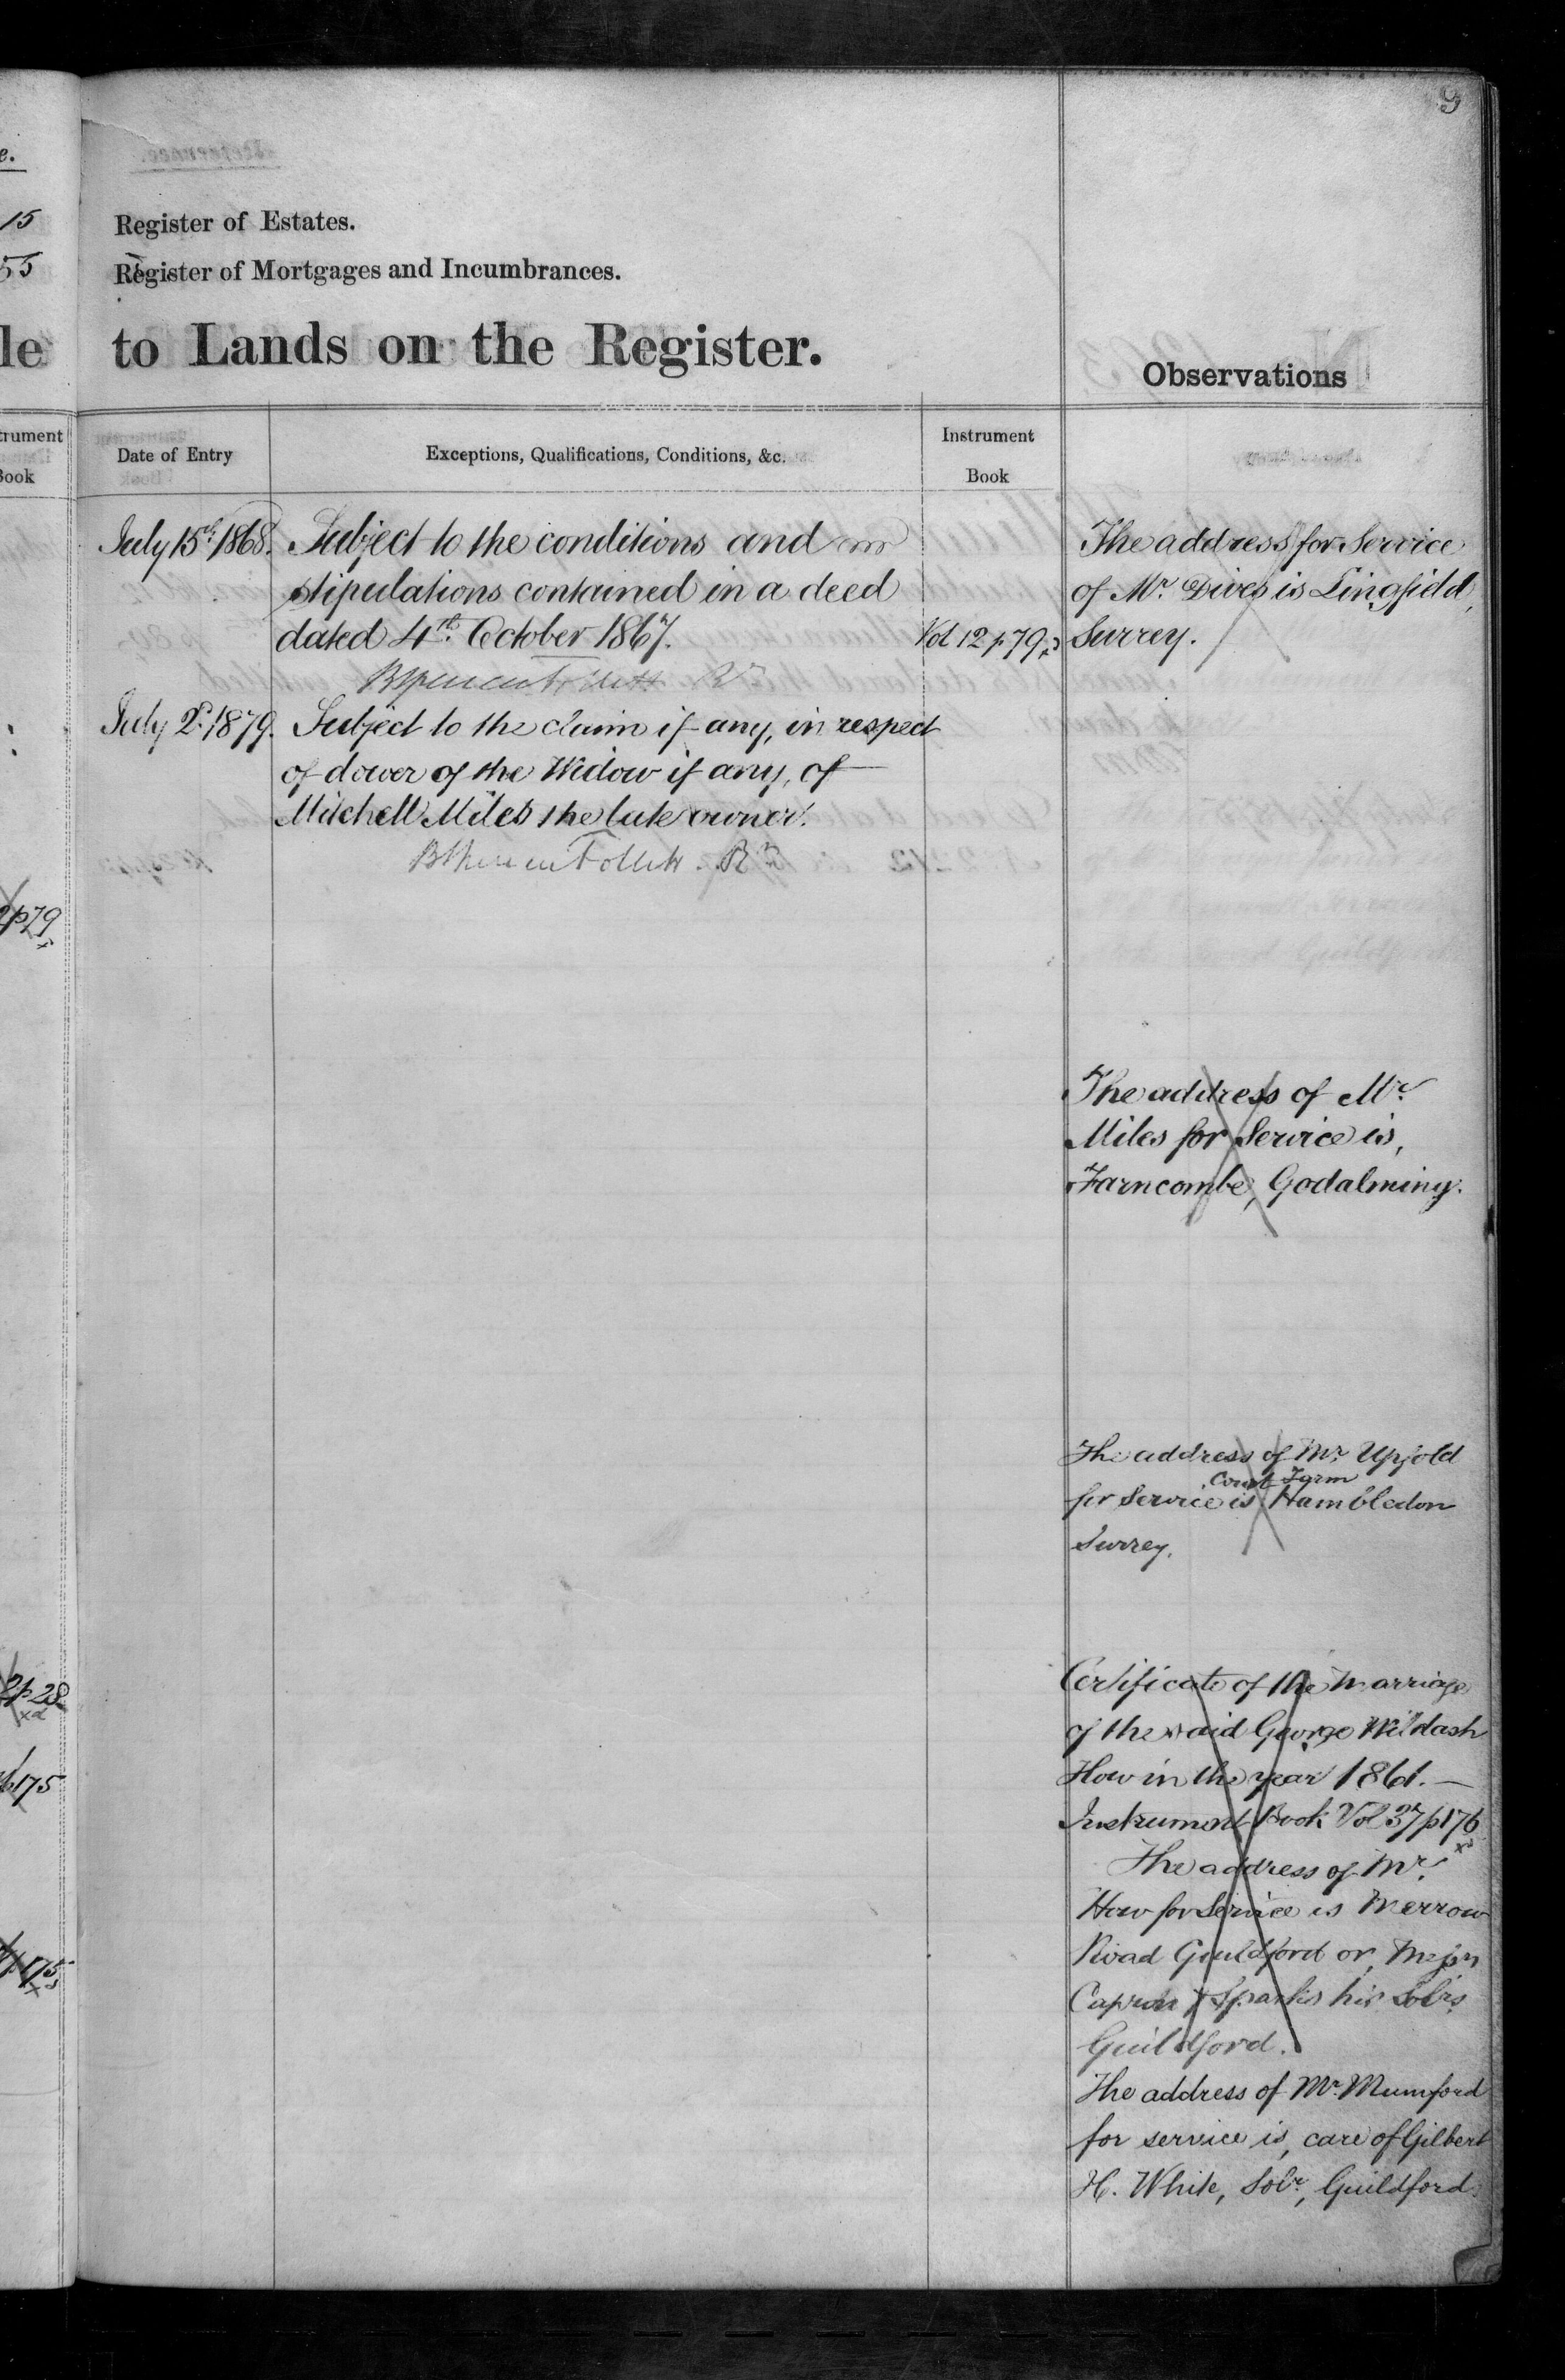 9
e.
15
55
Register of Estates.
Register of Mortgages and Incumbrances.
le
to Lands on the Register.
Observations
trument
Book
Date of Entry
Exceptions, Qualifications, Conditions, &c.
Instrument
Book
July 15th 1868.
Subject to the conditions and
stipulations contained in a deed
dated 4th October 1867.
Vol 12 p 79
July 2d 1879.
Subject to the claim if any, in respect
of dower of the Widow if any, of
Mitchell Miles the late owner.
2p79
2p28
175
175
The address for Service
of Mr. Dives is Lingfield,
Surrey.
The address of Mr.
Miles for Service is,
Farncombe, Godalming.
The address of Mr. Upfold
Court Farm
for Service is Hambledon
Surrey.
Certificate of the Marriage
of the said George Wildash
How in the year 1861.
Instrument Book Vol 37 p 176
The address of Mr.
How for Service is Merrow
Road Guildford or, Messrs
Capron & Sparks his Solrs
Guildford.
The address of Mr. Mumford
for service is, care of Gilbert
H. White, Solr., Guildford.